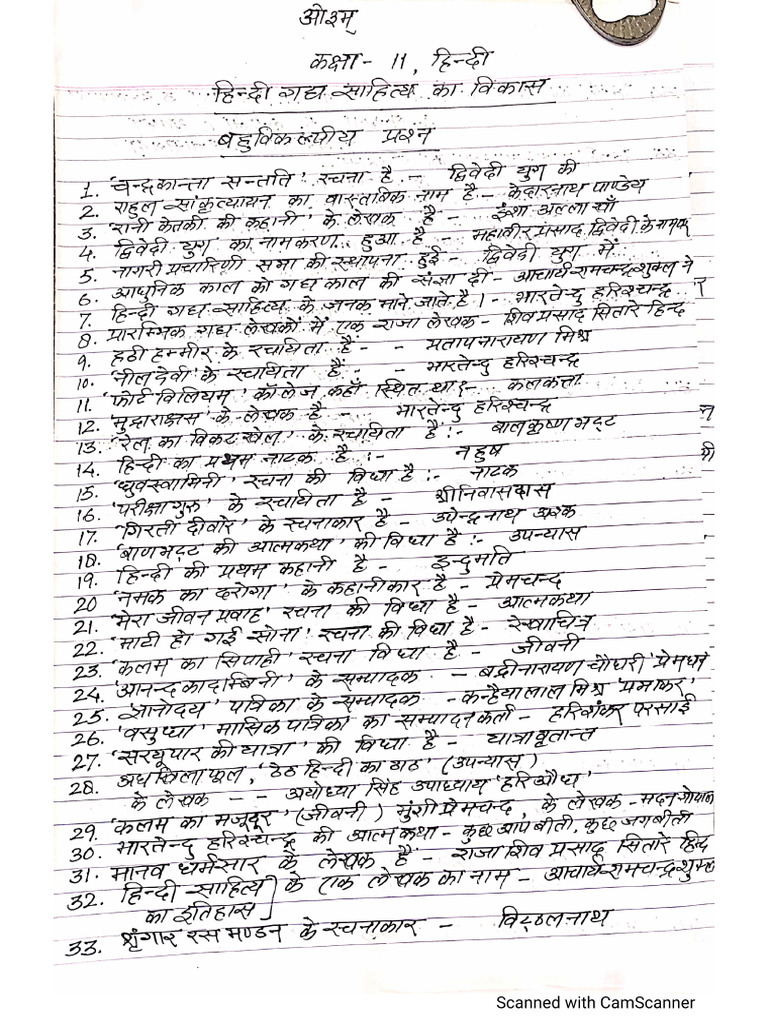 ओ३म्
कक्षा - 11, हिन्दी
हिन्दी गद्य साहित्य का विकास
बहुविकल्पीय प्रश्न
1. 'चन्द्रकान्ता सन्तति' रचना है - द्विवेदी युग की
2. राहुल सांकृत्यायन का वास्तविक नाम है - केदारनाथ पाण्डेय
3. 'रानी केतकी की कहानी' के लेखक हैं - इंशा अल्ला खाँ
4. द्विवेदी युग का नामकरण हुआ है - महावीर प्रसाद द्विवेदी के नाम पर
5. नागरी प्रचारिणी सभा की स्थापना हुई - द्विवेदी युग में
6. आधुनिक काल को गद्य काल की संज्ञा दी - आचार्य रामचन्द्र शुक्ल ने
7. हिन्दी गद्य साहित्य के जनक माने जाते है। - भारतेन्दु हरिश्चन्द्र
8. प्रारम्भिक गद्य लेखकों में एक राजा लेखक - शिवप्रसाद सितारे हिन्द
9. हठी हम्मीर के रचयिता हैं - - प्रतापनारायण मिश्र
10. 'नीलदेवी' के रचयिता हैं - - भारतेन्दु हरिश्चन्द्र
11. 'फोर्ट विलियम' कॉलेज कहाँ स्थित था :- कलकत्ता
12. 'मुद्राराक्षस' के लेखक है - भारतेन्दु हरिश्चन्द्र
13. 'रेल का विकट खेल' के रचयिता हैं :- बालकृष्ण भट्ट
14. हिन्दी का प्रथम नाटक है :- नहुष
15. 'ध्रुवस्वामिनी' रचना की विधा है :- नाटक
16. 'परीक्षा गुरु' के रचयिता है - श्रीनिवासदास
17. 'गिरती दीवारें' के रचनाकार है - उपेन्द्रनाथ अश्क
18. 'बाणभट्ट की आत्मकथा' की विधा है :- उपन्यास
19. हिन्दी की प्रथम कहानी है - इन्दुमति
20 'नमक का दरोगा' के कहानीकार है - प्रेमचन्द
21. 'मेरा जीवन प्रवाह' रचना की विधा है - आत्मकथा
22. 'माटी हो गई सोना' रचना की विधा है - रेखाचित्र
23. 'कलम का सिपाही' रचना विधा है - जीवनी
24. 'आनन्द कादम्बिनी' के सम्पादक - बद्रीनारायण चौधरी 'प्रेमधन
25. 'ज्ञानोदय' पत्रिका के सम्पादक - कन्हैयालाल मिश्र 'प्रभाकर'
26. 'वसुधा' मासिक पत्रिका का सम्पादन कर्ता - हरिशंकर परसाई
27. 'सरयूपार की यात्रा' की विधा है - यात्रावृतान्त
28. अधखिला फूल, 'ठेठ हिन्दी का ठाठ' (उपन्यास)
के लेखक - - अयोध्या सिंह उपाध्याय 'हरिऔध'
29. 'कलम का मजदूर' (जीवनी) मुंशी प्रेमचन्द, के लेखक - मदन गोपाल
30. भारतेन्दु हरिश्चन्द्र की आत्मकथा - कुछ आप बीती, कुछ जगबीती
31. मानव धर्मसार के लेखक हैं - राजा शिव प्रसाद सितारे हिन्द
32. हिन्दी साहित्य का इतिहास] के एक लेखक का नाम - आचार्य रामचन्द्र शुक्ल
33. श्रृंगार रस मण्डन के रचनाकार - विट्ठलनाथ
Scanned with CamScanner